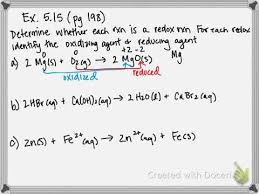 Ex. 5.15 (pg 198)
Determine whether each rxn is a redox rxn. For each redox
identify the oxidizing agent & reducing agent
a) 2 Mg(s) + O₂(g) → 2 MgO(s) Mg
oxidized reduced
b) 2HBr(aq) + Ca(OH)₂(aq) → 2 H₂O(l) + CaBr₂(aq)
c) Zn(s) + Fe²⁺(aq) → Zn²⁺(aq) + Fe(s)
Created with Doceri